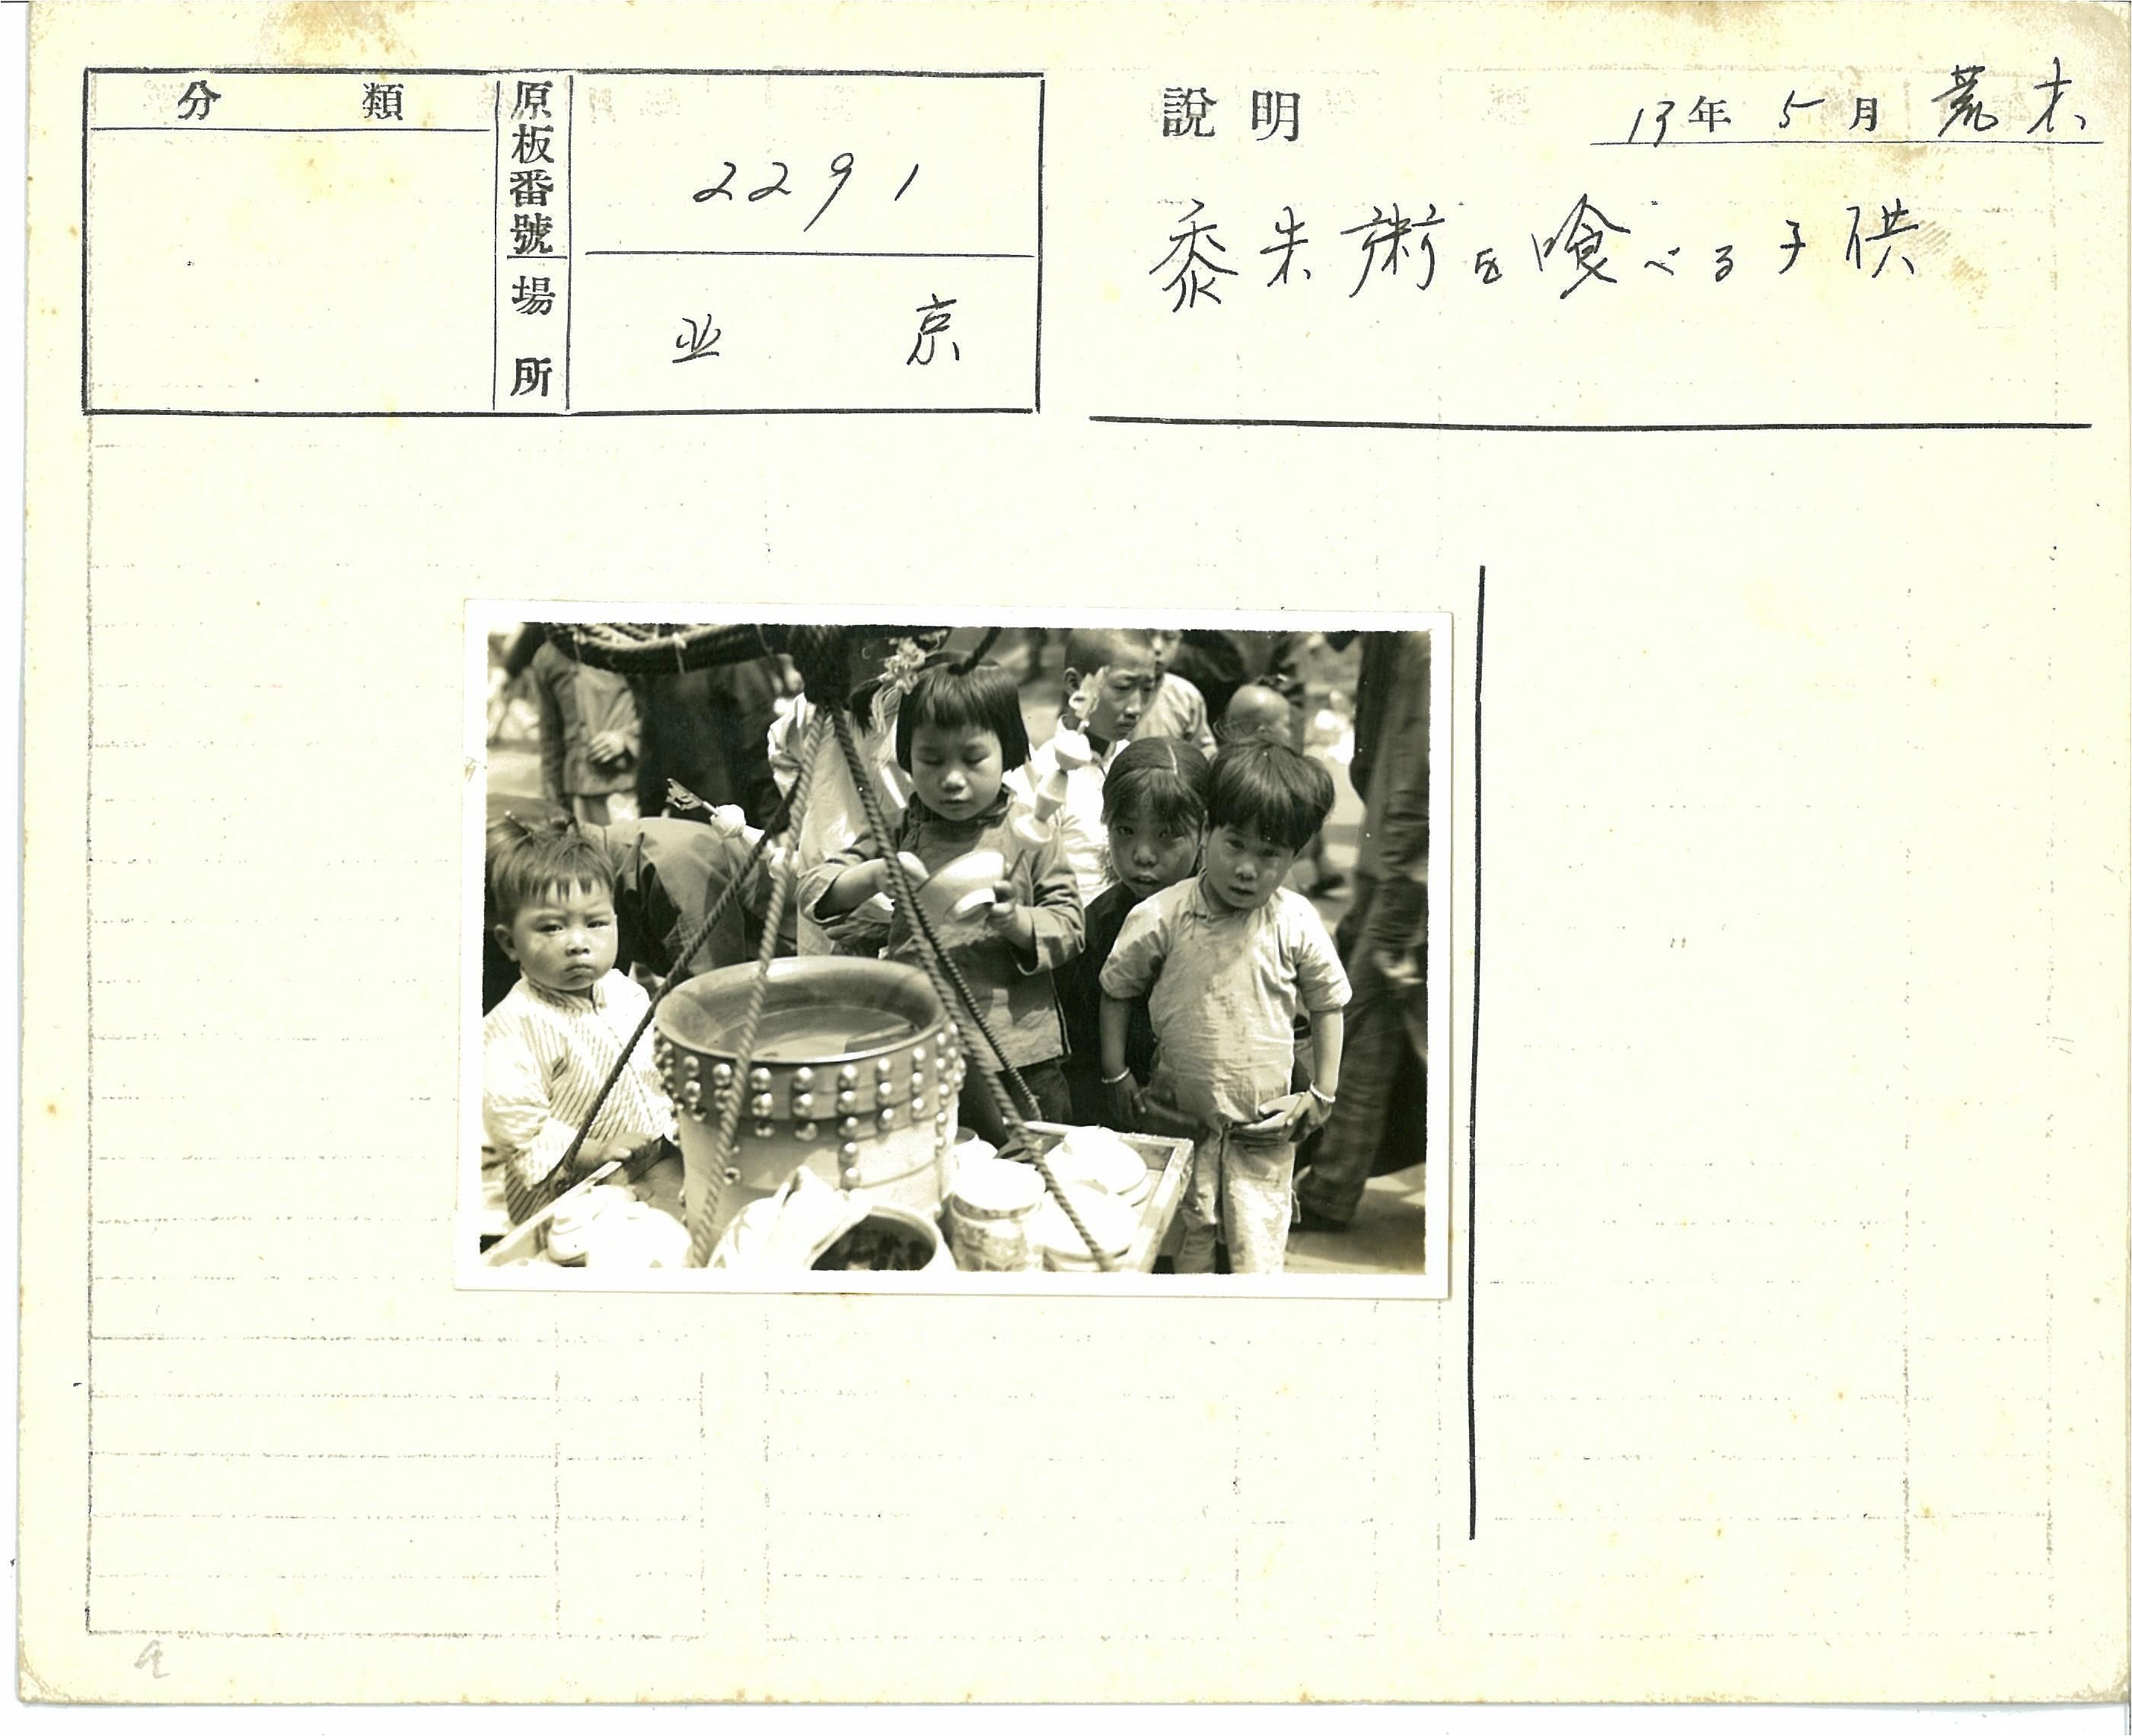 分類
原板番號
2291
場所
北京
説明
13年5月 荒木
黍朱術を喰べる子供
a